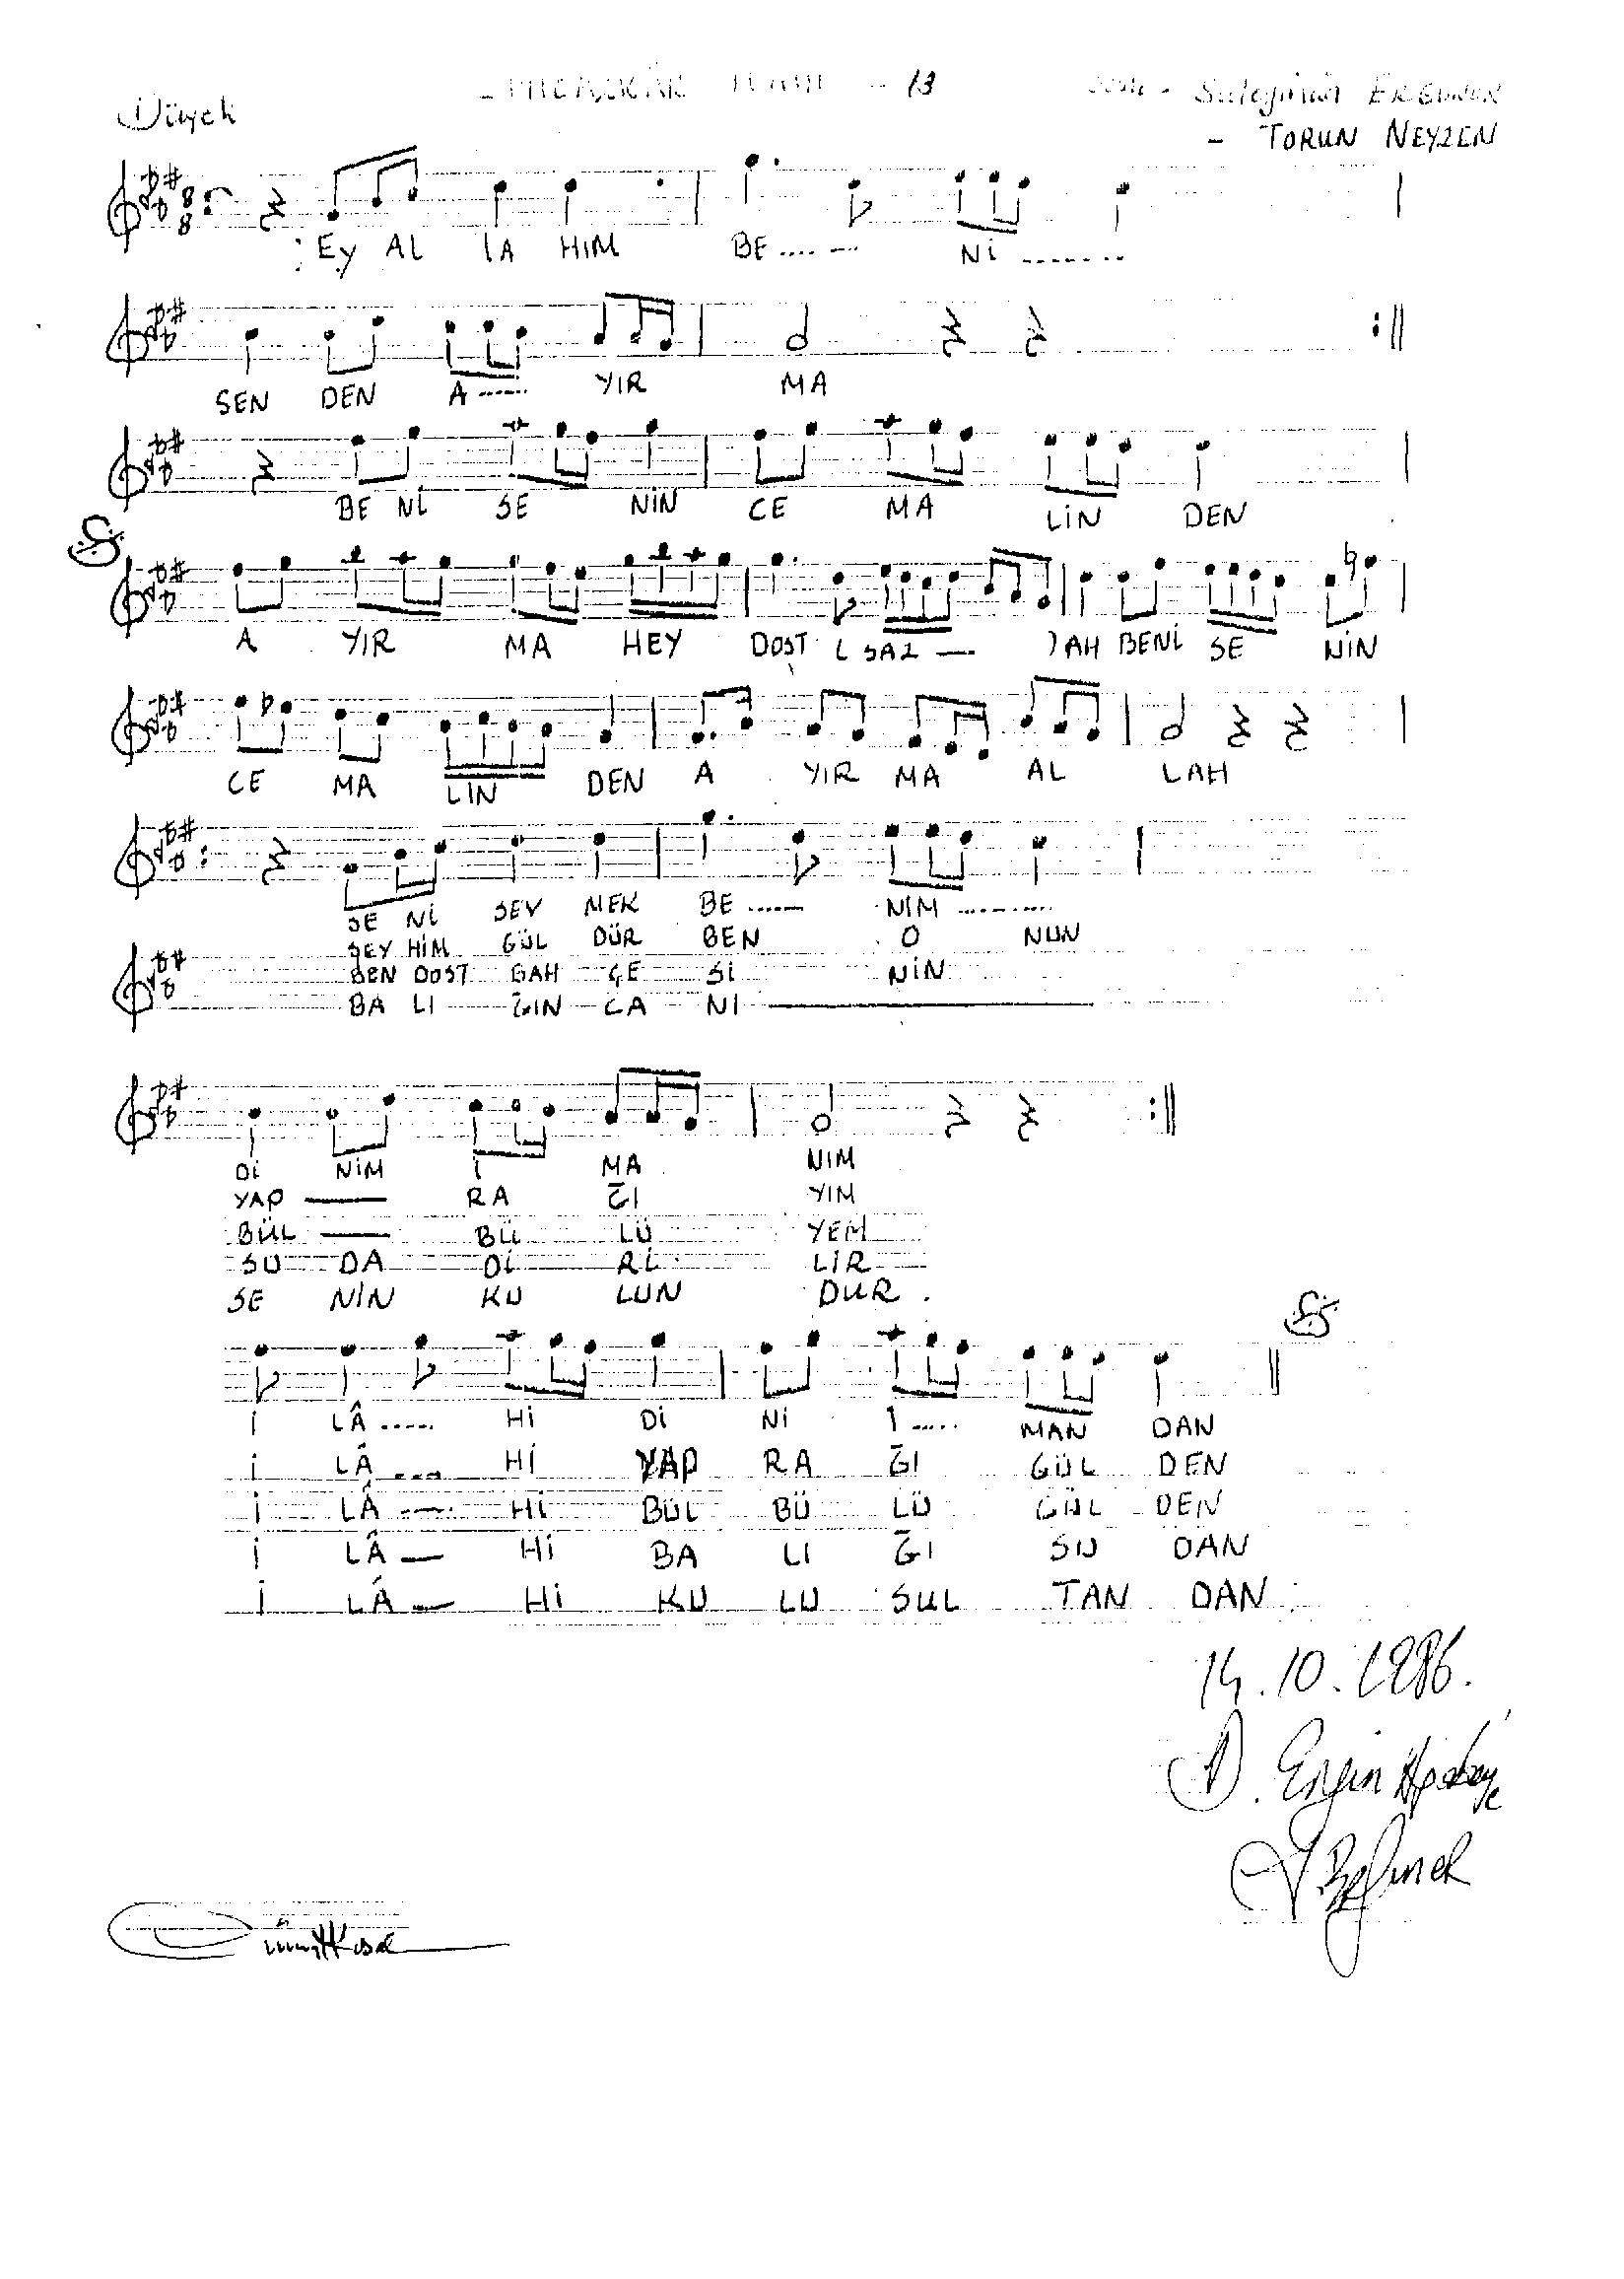 Düyek
13
Süleyman ERGUNER
- TORUN NEYZEN
8
8
EY AL LA HIM BE........ Nİ ........
SEN DEN A...... YIR MA
BE Nİ SE NİN CE MA LİN DEN
A YIR MA HEY DOST ( SAZ — ) AH BENİ SE NİN
CE MA LİN DEN A YIR MA AL LAH
SE Nİ SEV MEK BE ...... NİM ..........
ŞEY HİM GÜL DÜR BEN O NUN
BEN DOST BAH ÇE Sİ NİN
BA LI ĞIN CA NI
Dİ NİM İ MA NIM
YAP — RA ĞI YIM
BÜL — BÜ LÜ YEM
SU DA Dİ Rİ LİR
SE NİN KU LUN DUR .
İ LÂ ..... Hİ Dİ Nİ İ ..... MAN DAN
İ LÂ .... Hİ YAP RA ĞI GÜL DEN
İ LÂ —. Hİ BÜL BÜ LÜ GÜL DEN
İ LÂ — Hİ BA LI ĞI SU DAN
İ LÂ — Hİ KU LU SUL TAN DAN
14.10.1986.